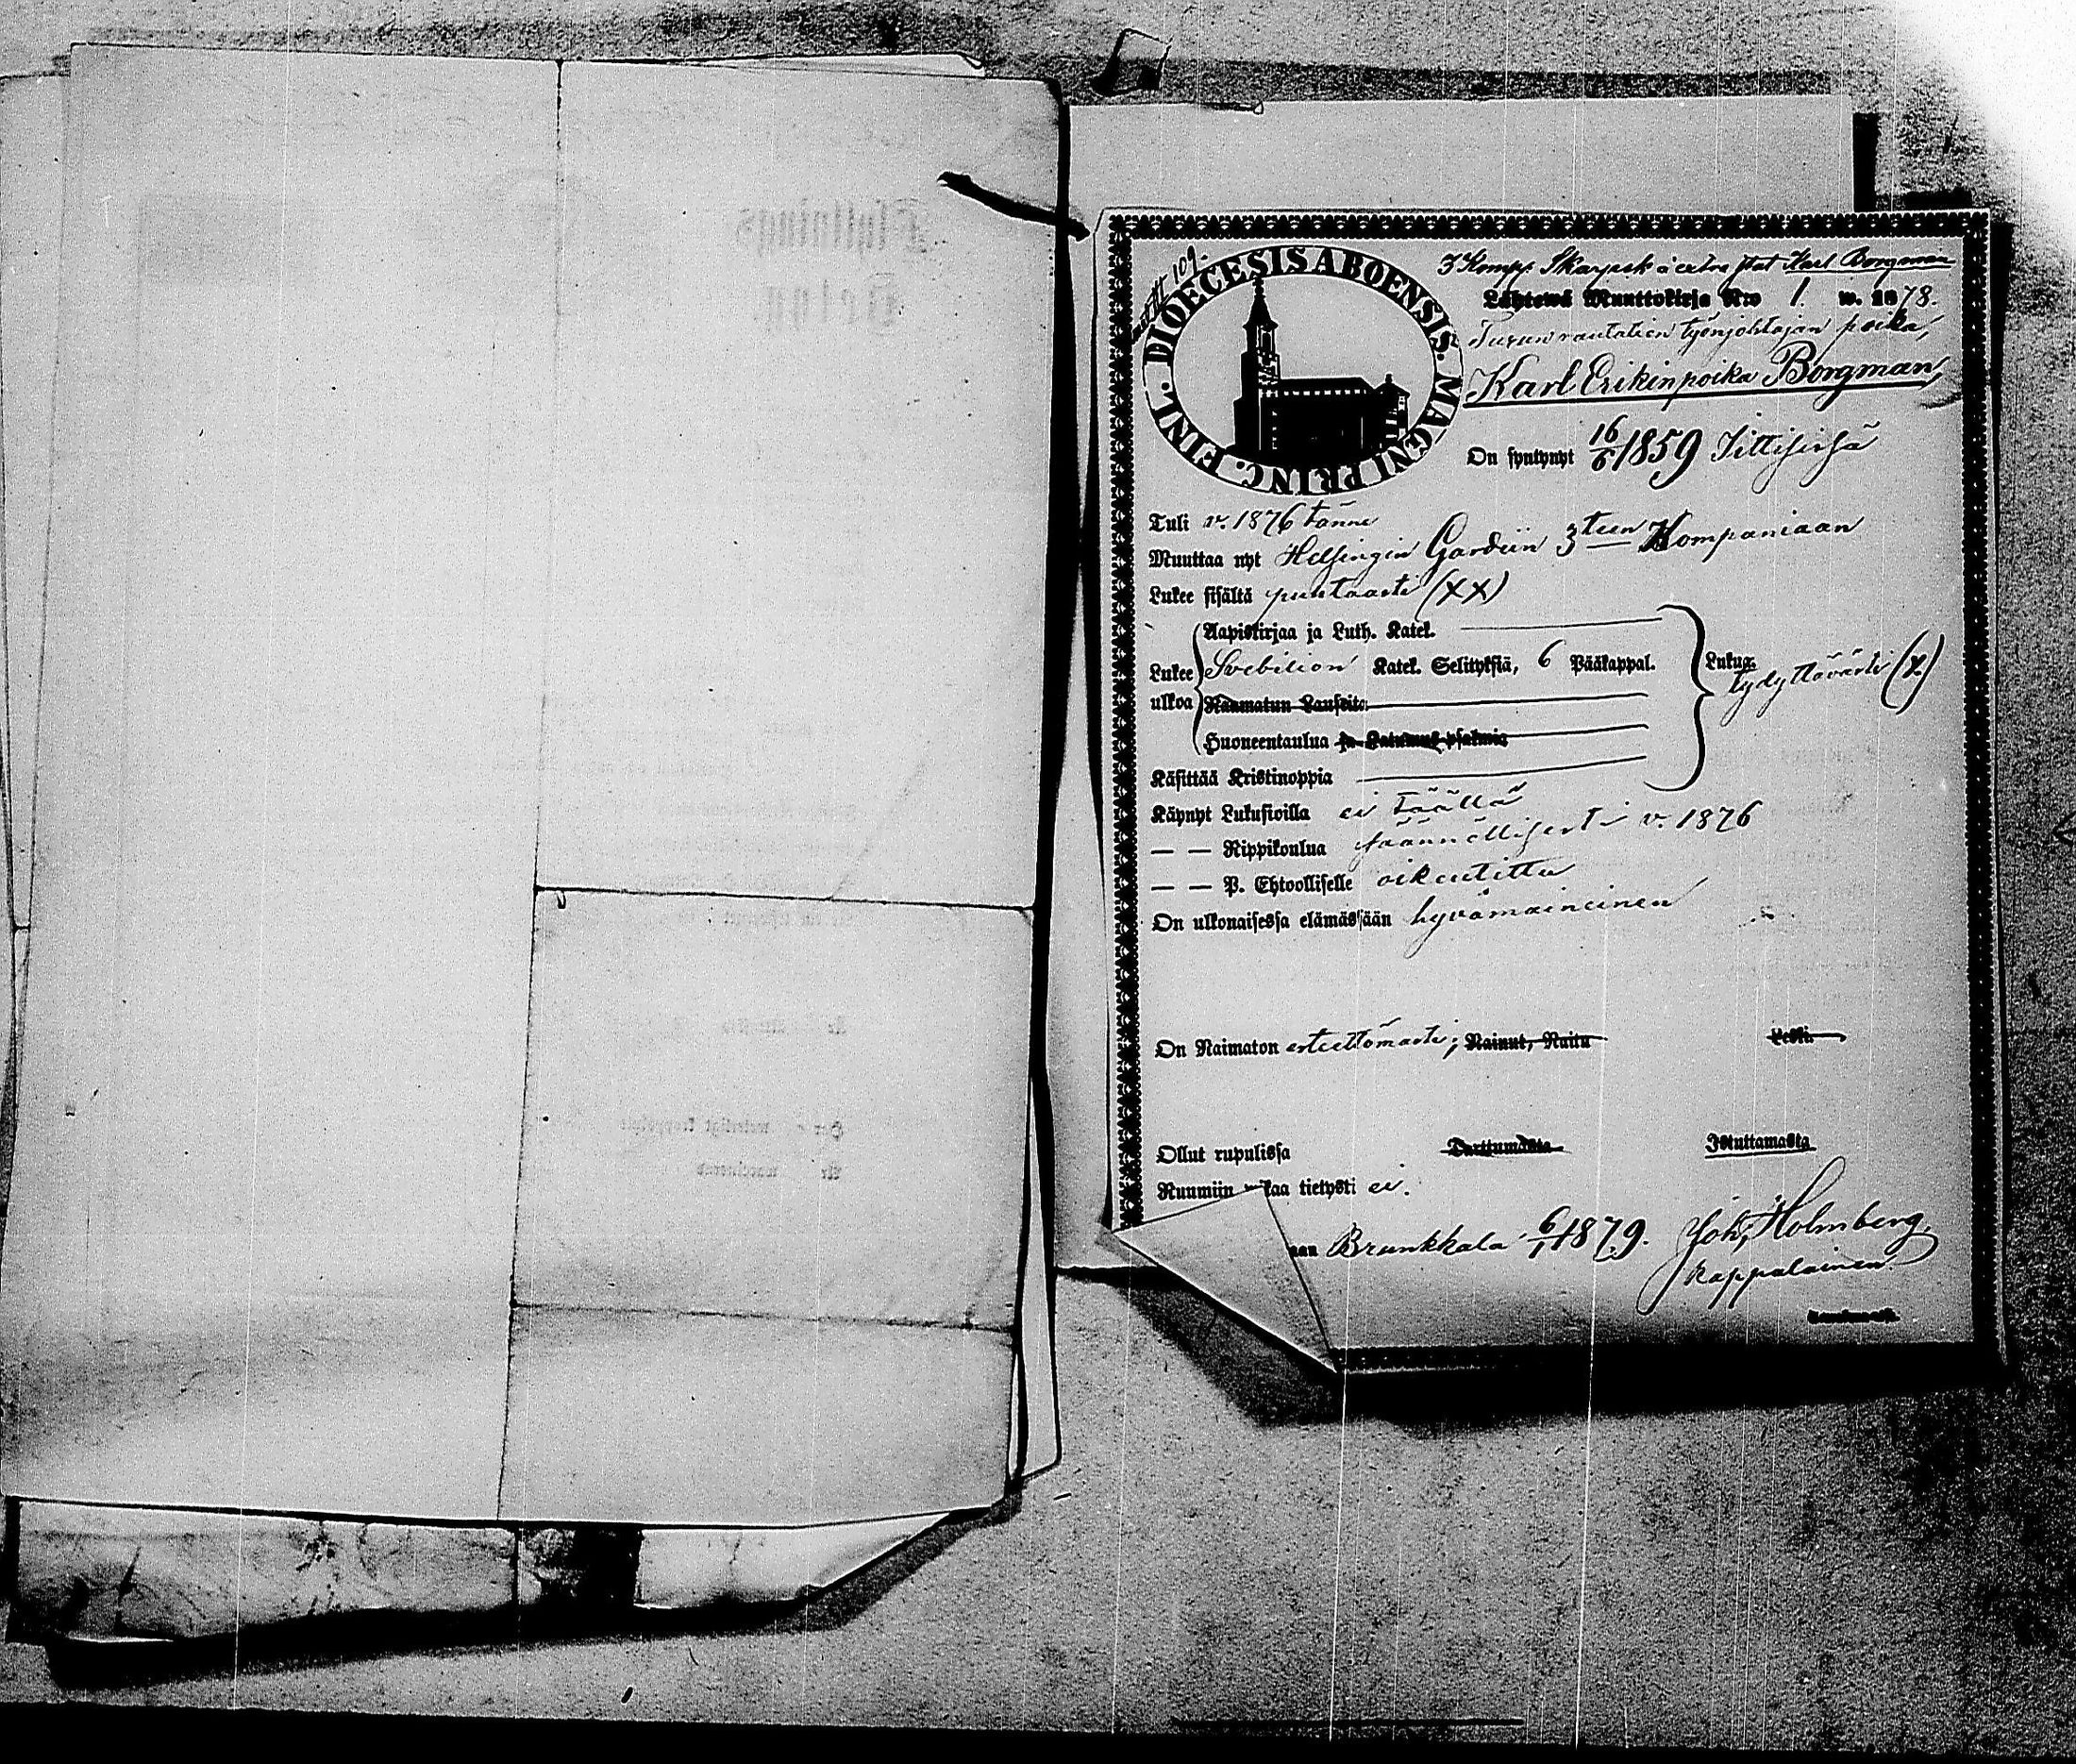 DIOECESIS ABOENSIS. MAGNI PRINC. FINL.
3 Komp. Skarpsk Karl Borgman
Lähtewä Muuttokirja N:o 1. w. 1878.
Turun rautatien työnjohtajan poika,
Karl Erikinpoika Borgman,
On syntynyt 16/6 1859 Iittisisä
Tuli v. 1876 tänne
Muuttaa nyt Helsingin Gardiin 3teen Kompaniaan
Lukee sisältä puhtaasti (XX)
Aapiskirjaa ja Luth. Katek.
Lukee ulkoa Svebilion Katek. Selityksiä, 6 Pääkappal.
Lukua. tydyttävästi (X.)
Raamatun Lauseita
Huoneentaulua ja Katumus-psalmia
Käsittää Kristinoppia
Käynyt Lukusioilla ei täällä
— — Rippikoulua säännöllisesti v. 1876
— — P. Ehtoolliselle oikeutettu
On ulkonaisessa elämässään hyvämaineinen
On Naimaton esteettömästi; Nainut, Naitu Leski.
Ollut rupulissa Tarttumasta Istuttamasta
Ruumiin wikaa tietysti ei.
Brunkkala 6/1 1879. Joh. Holmberg,
kappalainen
Flyttnings